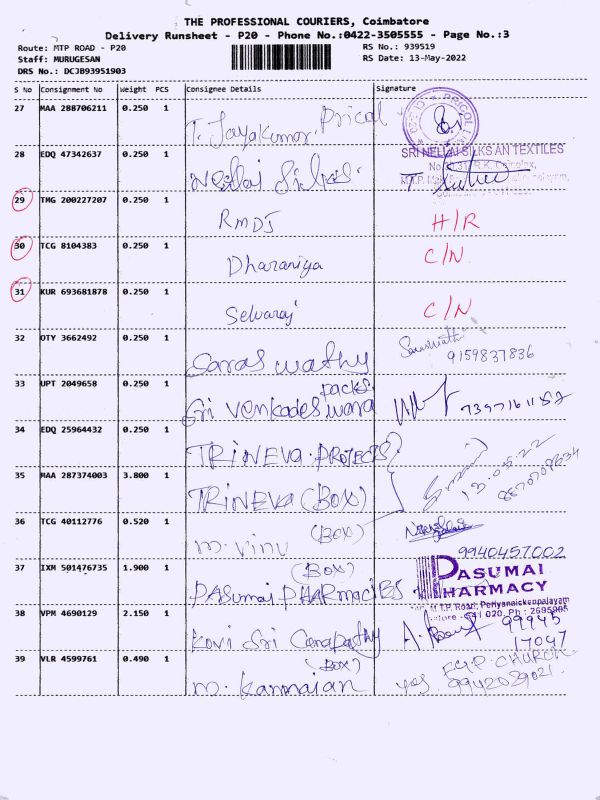 THE PROFESSIONAL COURIERS, Coimbatore
Delivery Runsheet - P20 - Phone No.:0422-3505555 - Page No.:3
Route: MTP ROAD - P20 RS No.: 939519
Staff: MURUGESAN RS Date: 13-May-2022
DRS No.: DCJB93951903
S No Consignment No Weight PCS Consignee Details Signature
27 MAA 288706211 0.250 1 T. Jayakumar, Pricol
28 EDQ 47342637 0.250 1 Nellai Silks.
SRI NELLAI SILKS AN TEXTILES
29 TMG 200227207 0.250 1 RMDJ H/R
30 TCG 8104383 0.250 1 Dharaniya C/N
31 KUR 693681878 0.250 1 Selvaraj C/N
32 OTY 3662492 0.250 1 Saraswathy 9159837836
33 UPT 2049658 0.250 1 Sri Venkadeswara packs.
34 EDQ 25964432 0.250 1 TRINEVA PROJECTS
35 MAA 287374003 3.800 1 TRINEVA (BOX) 13.05.22
36 TCG 40112776 0.520 1 M. Vinu (BOX)
9940457002
37 IXM 501476735 1.900 1 PASUMAI PHARMACIES (BOX)
PASUMAI
PHARMACY
M.T.P. Road, Periyanaickenpalayam
641 020. Ph : 2695965
38 VPM 4690129 2.150 1 Kovi Sri Canapathy 99945
17047
39 VLR 4599761 0.490 1 M. Kannaian (BOX) F.G.P. CHURCH
9942029021.